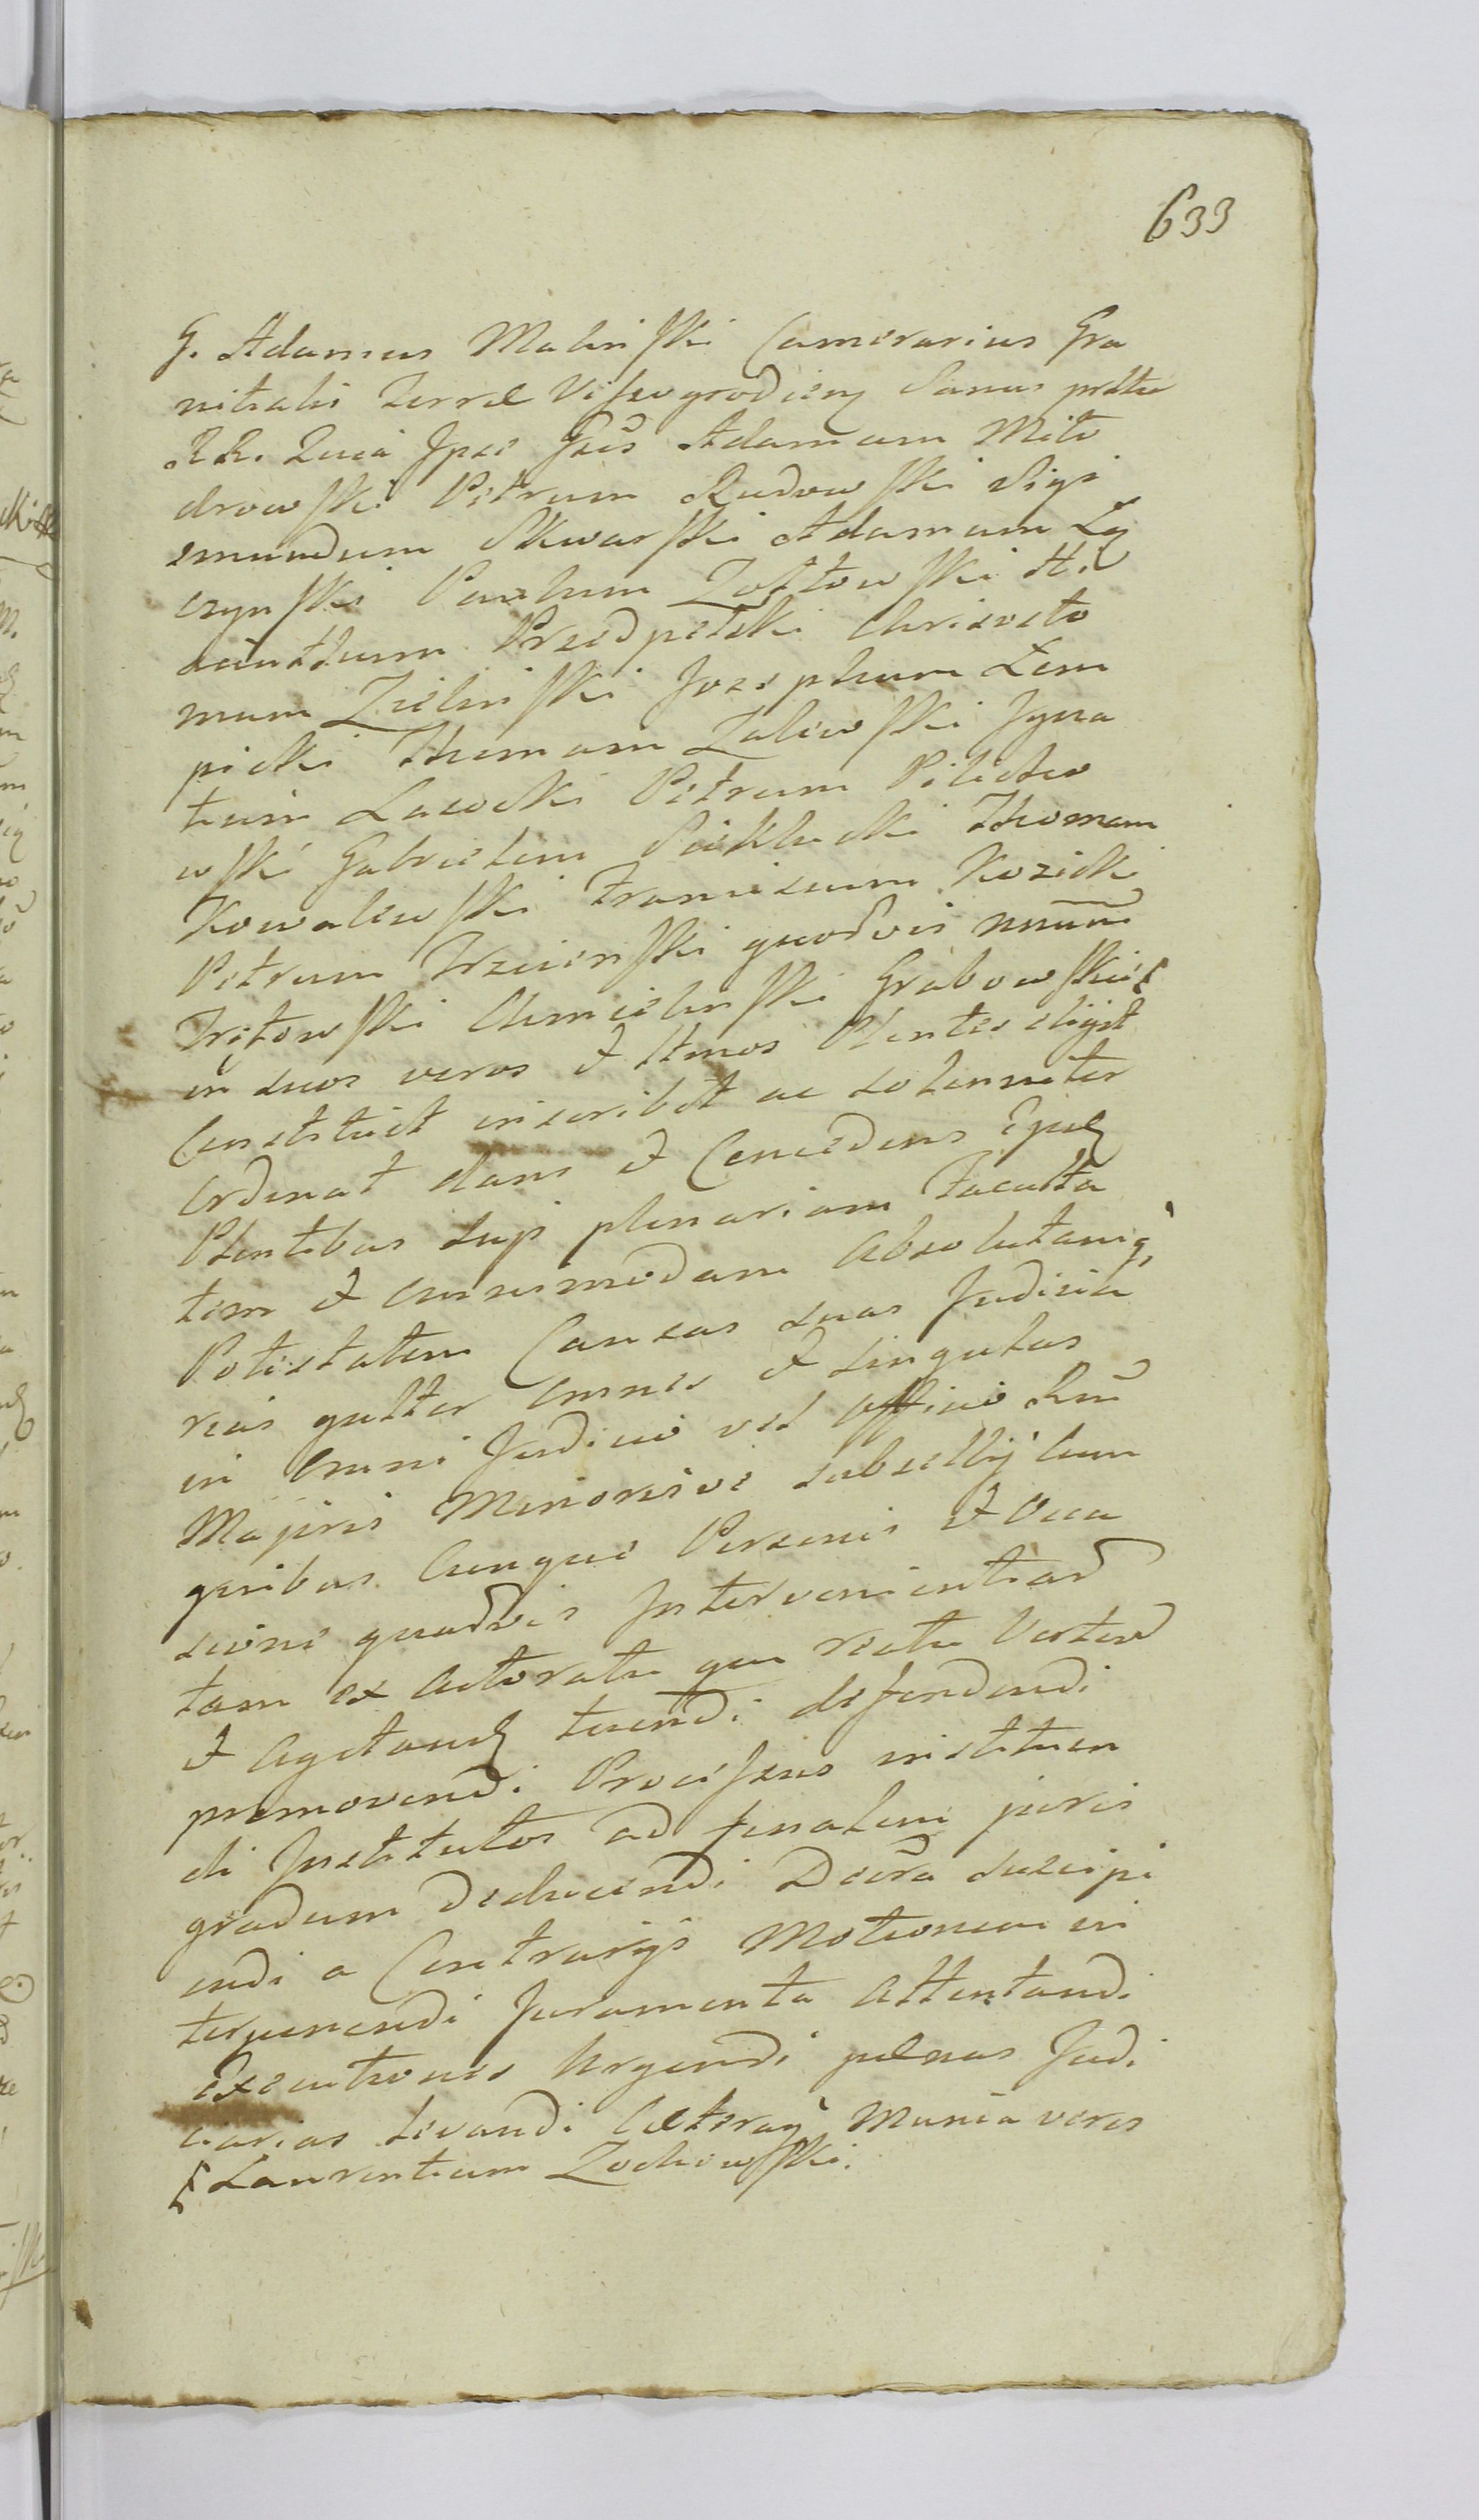 633
G. Adamus Malinski Camerarius Gra
nitialis Terrae Vissogrodien Sanus
R. R. Quia Ipse Adamum Milo
drowski Petrum Rudowski Sigi
smundum Skwarski Adamum Łą
czynski Paulum Zołtowski Hi
acinthum Przedpełski Chrisosto
mum Zielinski Josephum Łem
picki Thomam Zalewski Igna
tium Lasocki Petrum Pilicho
wski Gabrielem Thomam
Kowalewski Franciscum Kozicki
Petrum Trzcienski quodvis
Chmielinski Grabowski
in suos veros et Plentes eligit
Constituit inscribit ac solenniter
Ordinat dans et Concedens
Plentibus suis plenariam Faculta
tem et omnimodam Absolutamq
Potestatem Causas suas Judicia
rias omnes et singulas
in omni Judicio vel Officio
Majoris Minorisve subsellij cum
quibus cunque Personis et Occa
sione quadvis Intervenientiad
tam ex actoratu qua reatu Vertend
et Agitand tuendi defendendi
promovendi Processus instituen
di Institutos ad finalem juris
gradum deducendi Decra suscipi
endi a Contrarijs Motionem in
terponendi Juramenta Attentandi
Executiones Urgendi paenas Judi
ciarias levandi Caeteraq Munia veros
Laurentium Zochowski.